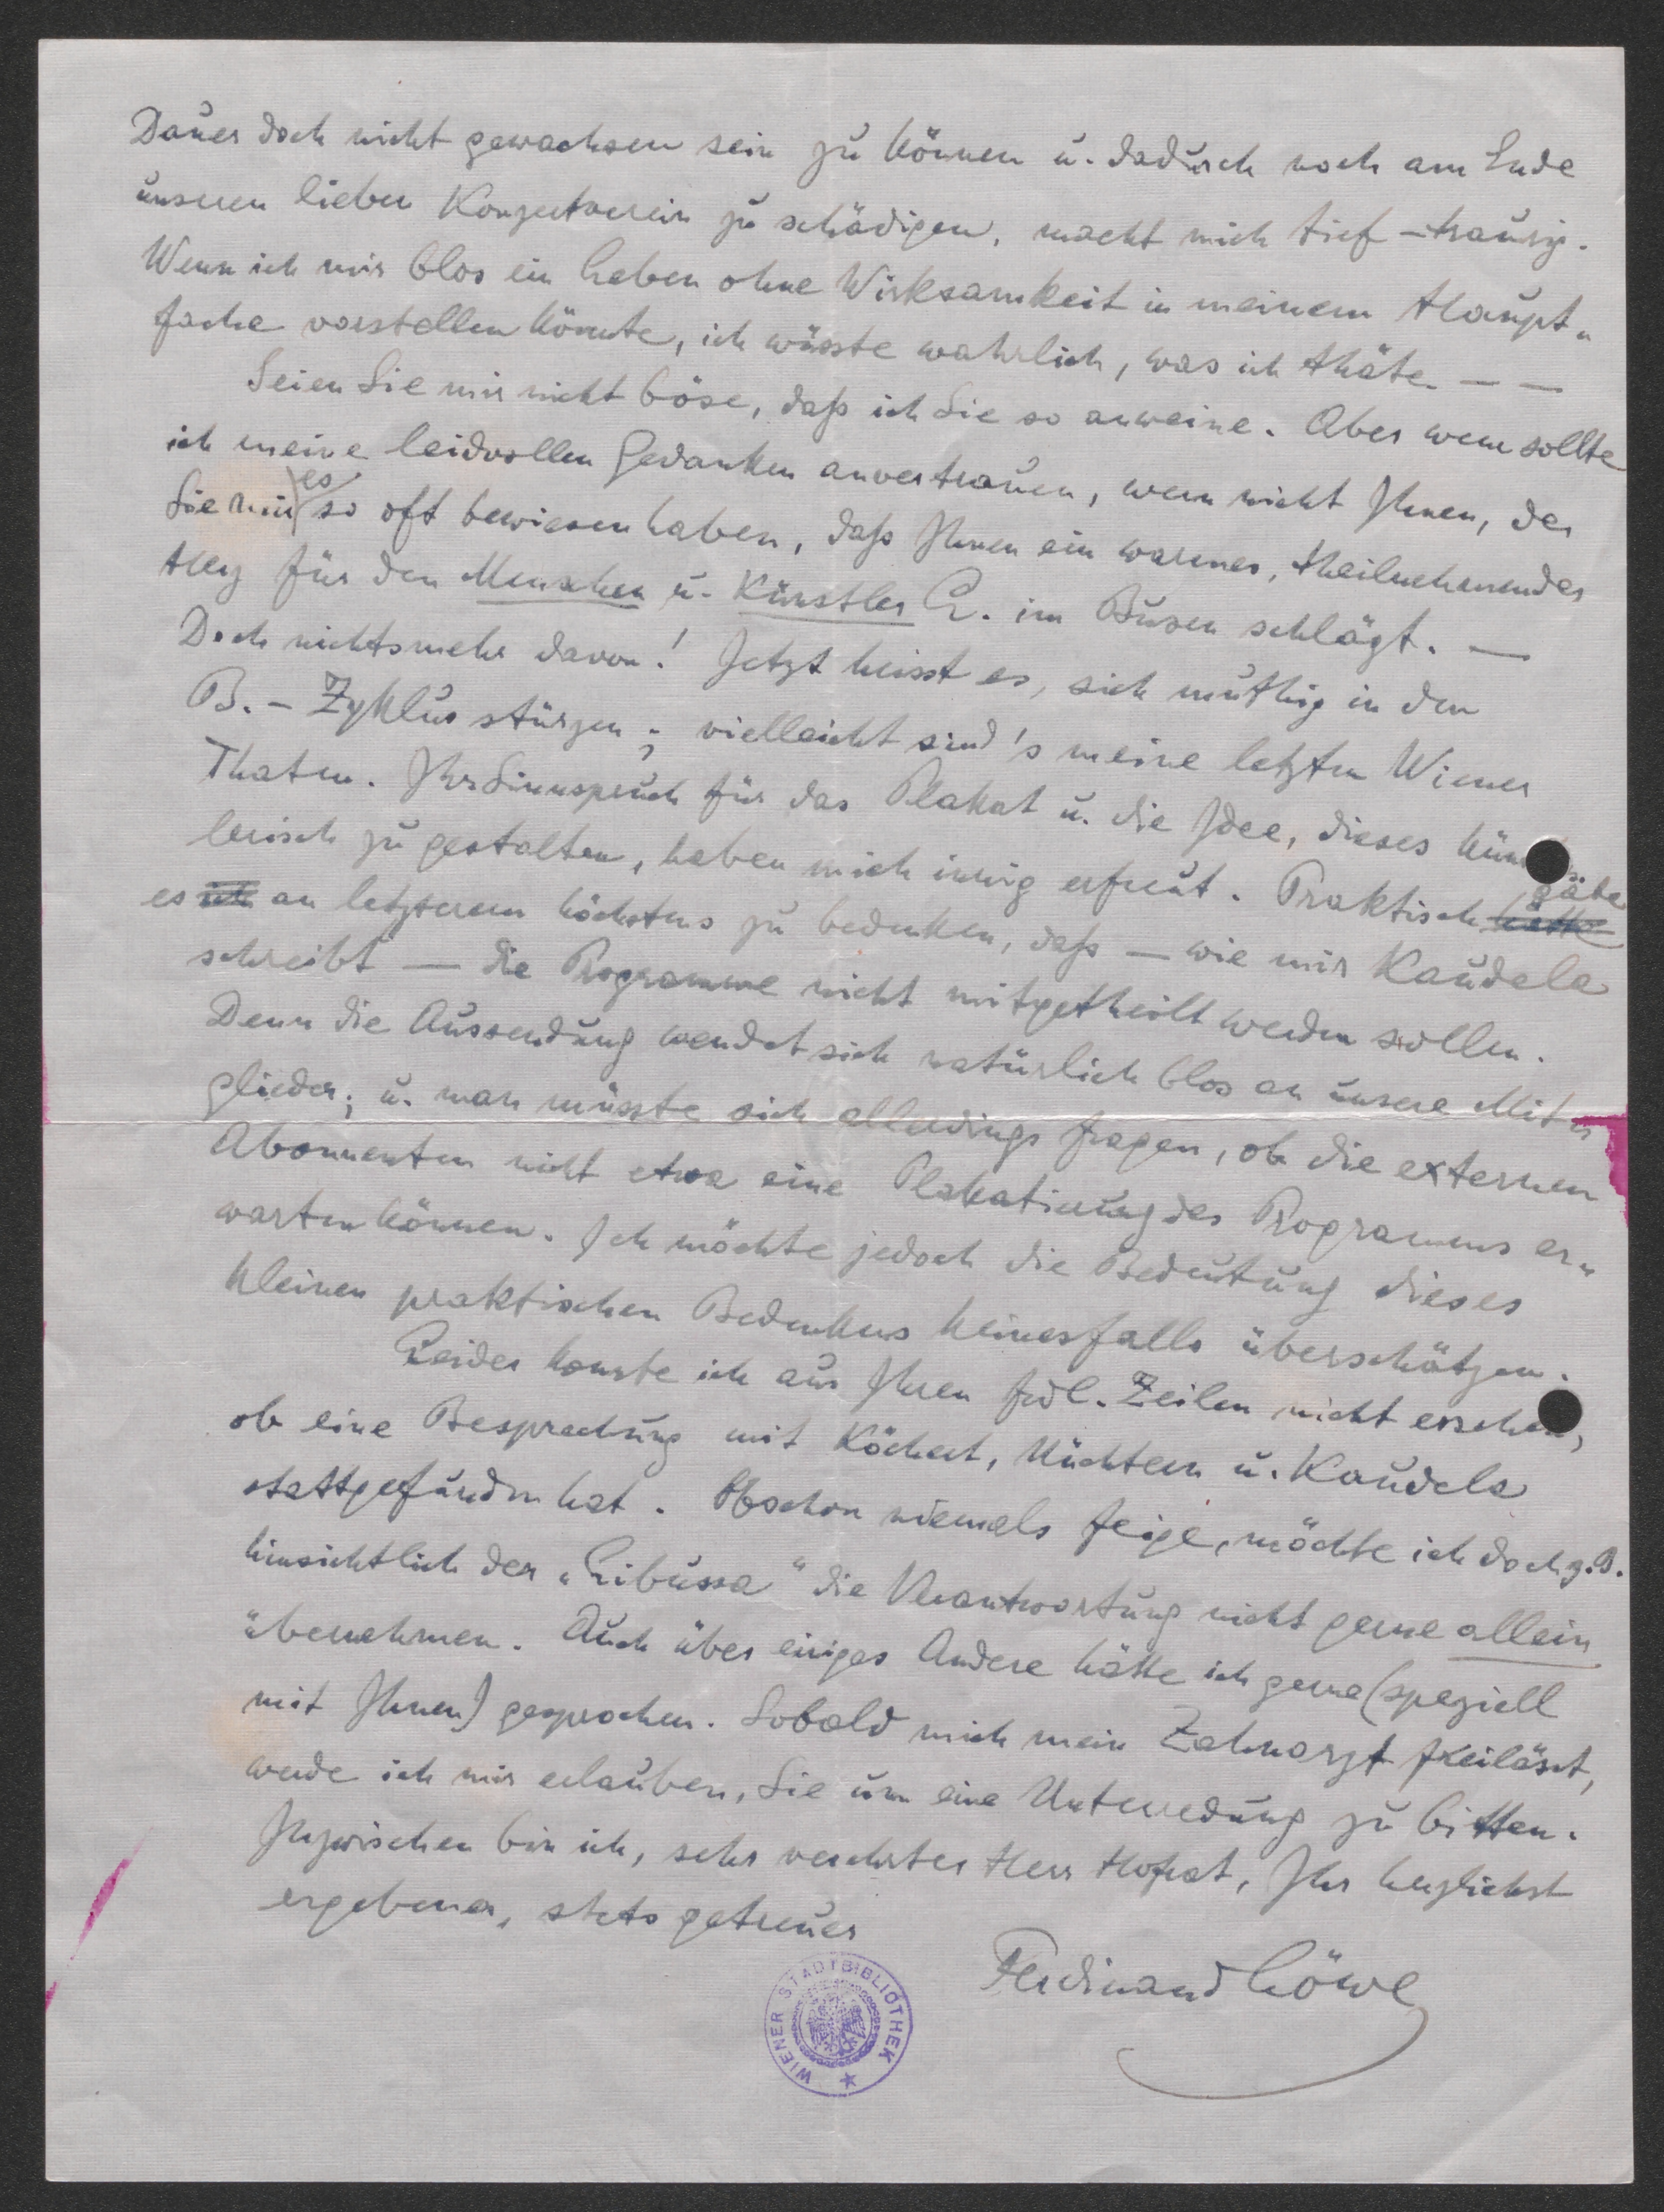 Dauer doch nicht gewachsen sein zu können u. dadurch noch am Ende
unseren lieben Konzertverein zu schädigen, macht mich tief-traurig.
Wenn ich mir blos ein Leben ohne Wirksamkeit in meinem Haupt„
fache vorstellen könnte, ich wüsste wahrlich, was ich thäte. — —
Seien Sie mir nicht böse, daß ich Sie so anweine. Aber wem sollte
ich meine leidvollen Gedanken anvertrauen, wenn nicht Ihnen, der
Sie mir es so oft bewiesen haben, daß Ihnen ein warmes, theilnehmendes
Herz für den Menschen u. Künstler L. im Busen schlägt. —
Doch nichtsmehr davon! Jetzt heisst es, sich muthig in den
B.-Zyklus stürzen; vielleicht sind's meine letzten Wiener
Thaten. Ihr Sinnspruch für das Plakat u. die Idee, dieses kün
lerisch zu gestalten, haben mich innig erfreut. Praktisch hätte gäbe
es ich an letzterem höchstens zu bedenken, daß — wie mir Kaudela
schreibt — die Programme nicht mitgetheilt werden sollen.
Denn die Aussendung wendet sich natürlich blos an unsere Mit„
glieder; u. man müsste sich allerdings fragen, ob die externen
Abonnenten nicht etwa eine Plakatierung des Programms er„
warten können. Ich möchte jedoch die Bedeutung dieses
kleinen praktischen Bedenkens keinesfalls überschätzen.
Leider konnte ich aus Ihren frdl. Zeilen nicht ersehen,
ob eine Besprechung mit Köchert, Küchtern u. Kaudela
stattgefunden hat. Obschon niemals feige, möchte ich doch z.B.
hinsichtlich der „Libussa“ die Verantwortung nicht gerne allein
übernehmen. Auch über einiges Andere hätte ich gerne (speziell
mit Ihnen) gesprochen. Sobald mich mein Zahnarzt freilässt,
werde ich mir erlauben, Sie um eine Unterredung zu bitten.
Inzwischen bin ich, sehr verehrter Herr Hofrat, Ihr herzlichst
ergebener, stets getreuer
Ferdinand Löwe
WIENER STADTBIBLIOTHEK